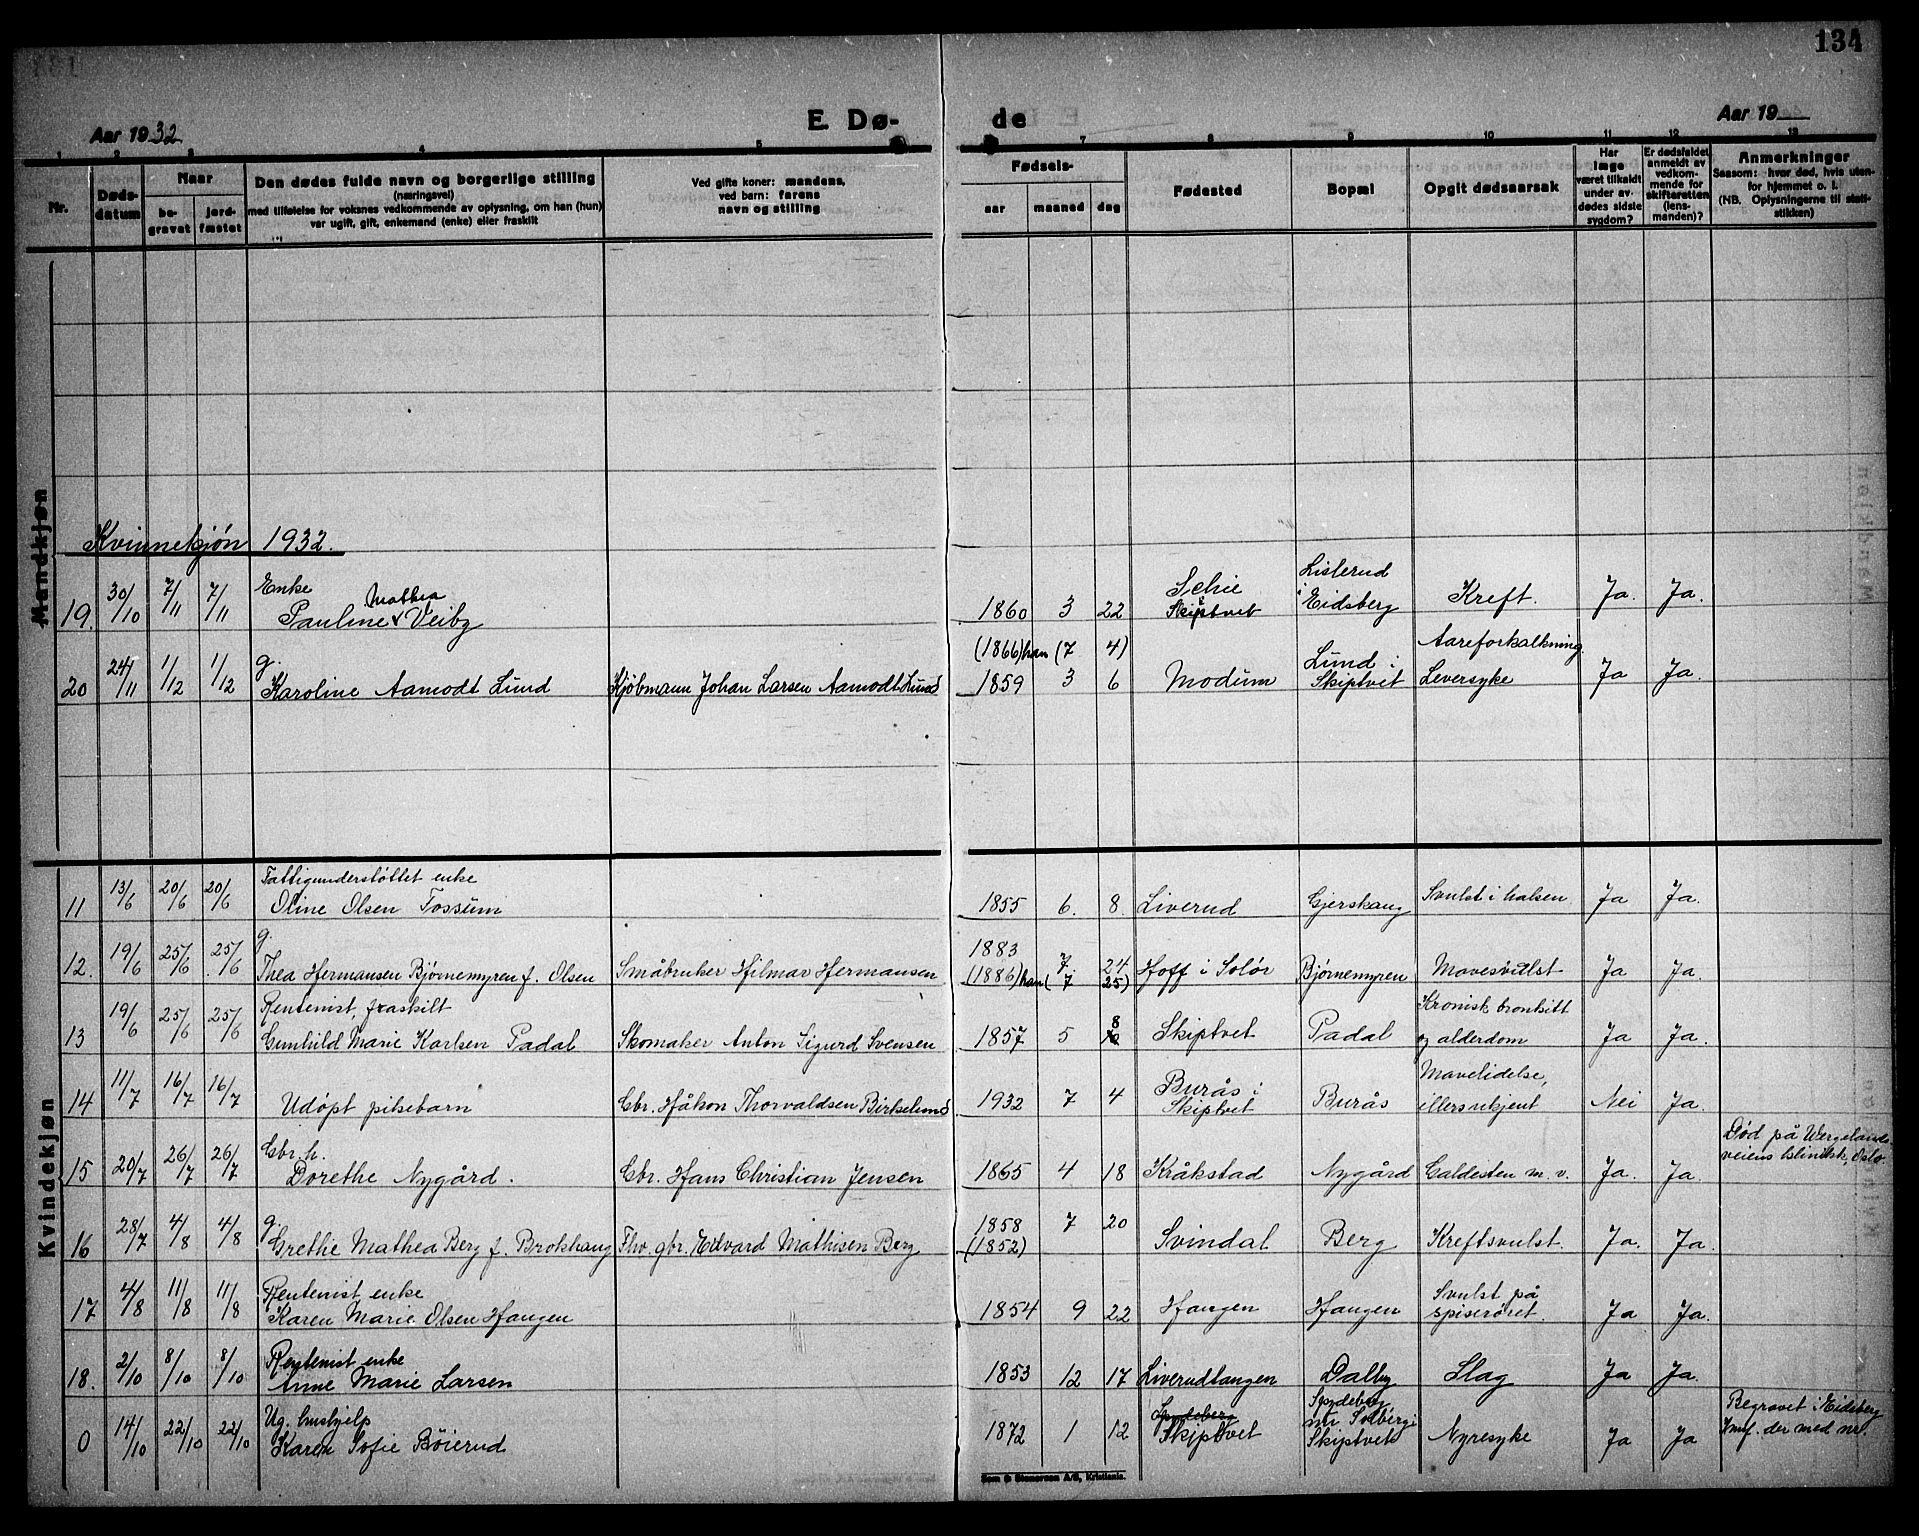 134
Aar 1932
E. Dø-
de
Aar 19
1 2 3 4 5 7 8 9 10 11 12 13
Nr.
Døds-
datum
Naar
be-
gravet
jord-
fæstet
Den dødes fulde navn og borgerlige stilling
(næringsvei)
med tilføielse for voksnes vedkommende av oplysning, om han (hun)
var ugift, gift, enkemand (enke) eller fraskilt
Ved gifte koner: mandens,
ved børn: farens
navn og stilling
Fødsels-
aar maaned dag
Fødested
Bopæl
Opgit dødsaarsak
Har
læge
været tilkaldt
under av-
dødes sidste
sygdom?
Er dødsfaldet
anmeldt av
vedkom-
mende for
skifteretten
(lens-
manden)?
Anmerkninger
Saasom: hvor død, hvis uten-
for hjemmet o. l.
(NB. Oplysningerne til stati-
stikken)
Mandkjøn
Kvinnekjøn 1932.
Enke Mathea
19. 30/10 7/11 7/11 Pauline Veiby 1860 3 22 Schie i Skiptvet Listerud i Eidsberg Kreft. Ja. Ja.
(1866) han (7 4)
g. Aareforkalkning.
20 24/11 1/12 1/12 Karoline Aamodt Lund Kjøbmann Johan Larsen Aamodt Lund 1859 3 6 Modum Lund i Skiptvet Leversyke Ja Ja.
Kvindekjøn
Fattigunderstøttet enke
11 13/6 20/6 20/6 Oline Olsen Fossum 1855 6. 8. Liverud Gjershaug Svulst i halsen Ja Ja.
g. 1883 7. 24
12. 19/6 25/6 25/6 Thea Hermansen Bjørnemyren f. Olsen Småbruker Hilmar Hermansen (1886) han (7 25) Hoff i Solør Bjørnemyren Mavesvulst Ja Ja.
Rentenist, fraskilt Kronisk bronkitt
13 19/6 25/6 25/6 Gunhild Marie Karlsen Padal Skomaker Anton Sigurd Svensen 1857 5 8 Skiptvet Padal og alderdom Ja Ja.
Mavelidelse,
14 11/7 16/7 16/7 Udøpt pikebarn Gbr. Håkon Thorvaldsen Birkelund 1932 7 4 Burås i Skiptvet Burås illers ukjent Nei Ja.
Gbr. h. Død på Wergelands-
veiens klinikk, Oslo.
15 20/7 26/7 26/7 Dorethe Nygård. Gbr. Hans Christian Jensen 1865 4 18 Kråkstad Nygård Galdesten m. v. Ja. Ja.
g. 1858 7 20
16 28/7 4/8 4/8 Grethe Mathea Berg f. Brokhaug Fhv. gbr. Edvard Mathisen Berg (1852) Svindal Berg Kreftsvulst. Ja. Ja.
Rentenist enke Svulst på
17 4/8 11/8 11/8 Karen Marie Olsen Haugen 1854 9 22 Haugen Haugen spiserøret. Ja Ja.
Rentenist enke
18. 2/10 8/10 8/10 Anne Marie Larsen 1853 12 17 Liverudtangen Dalby Slag Ja Ja.
Ug. hushjelp Spydeberg Spydeberg Begravet i Eidsberg
0 14/10 22/10 22/10 Karen Sofie Bøierud 1872 1 12 Skiptvet nu Solberg i Skiptvet Nyresyke Ja Ja
der med nr.
Sem & Stenersen A/S, Kristiania.